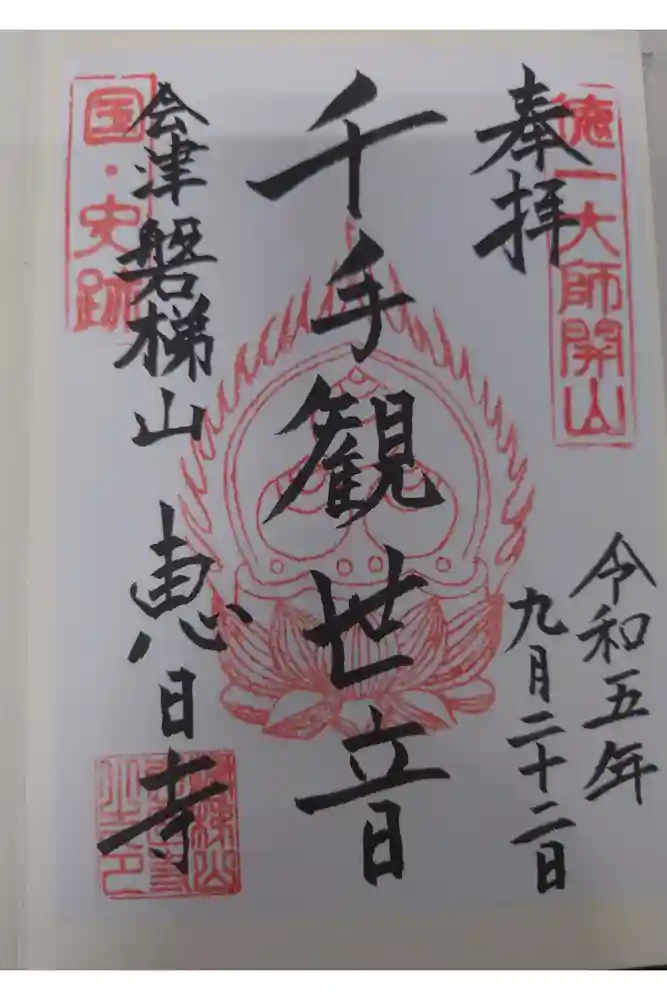 奉拝
徳一大師開山
令和五年
九月二十二日
千手観世音
会津磐梯山 恵日寺
国・史跡